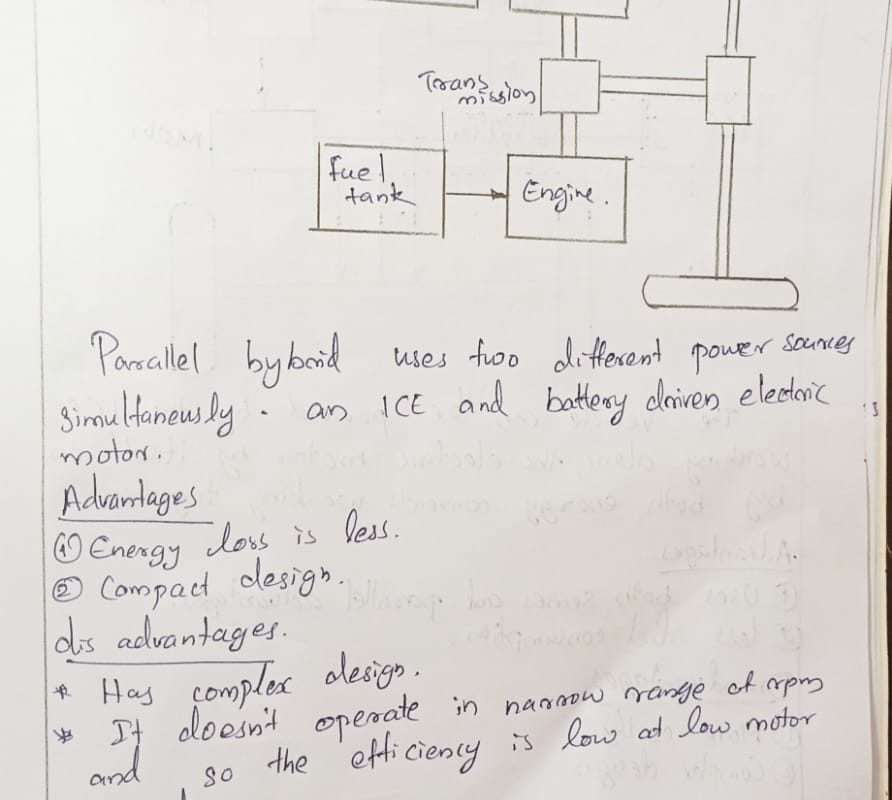 Trans
mission
fuel
tank
Engine.
Parallel hybrid uses two different power sources
simultaneusly. an ICE and battery driven electric
motor.
Advantages
① Energy loss is less.
② Compact design.
dis advantages.
* Has complex design.
* It doesn't operate in narrow range of rpm
and so the efficiency is low at low motor